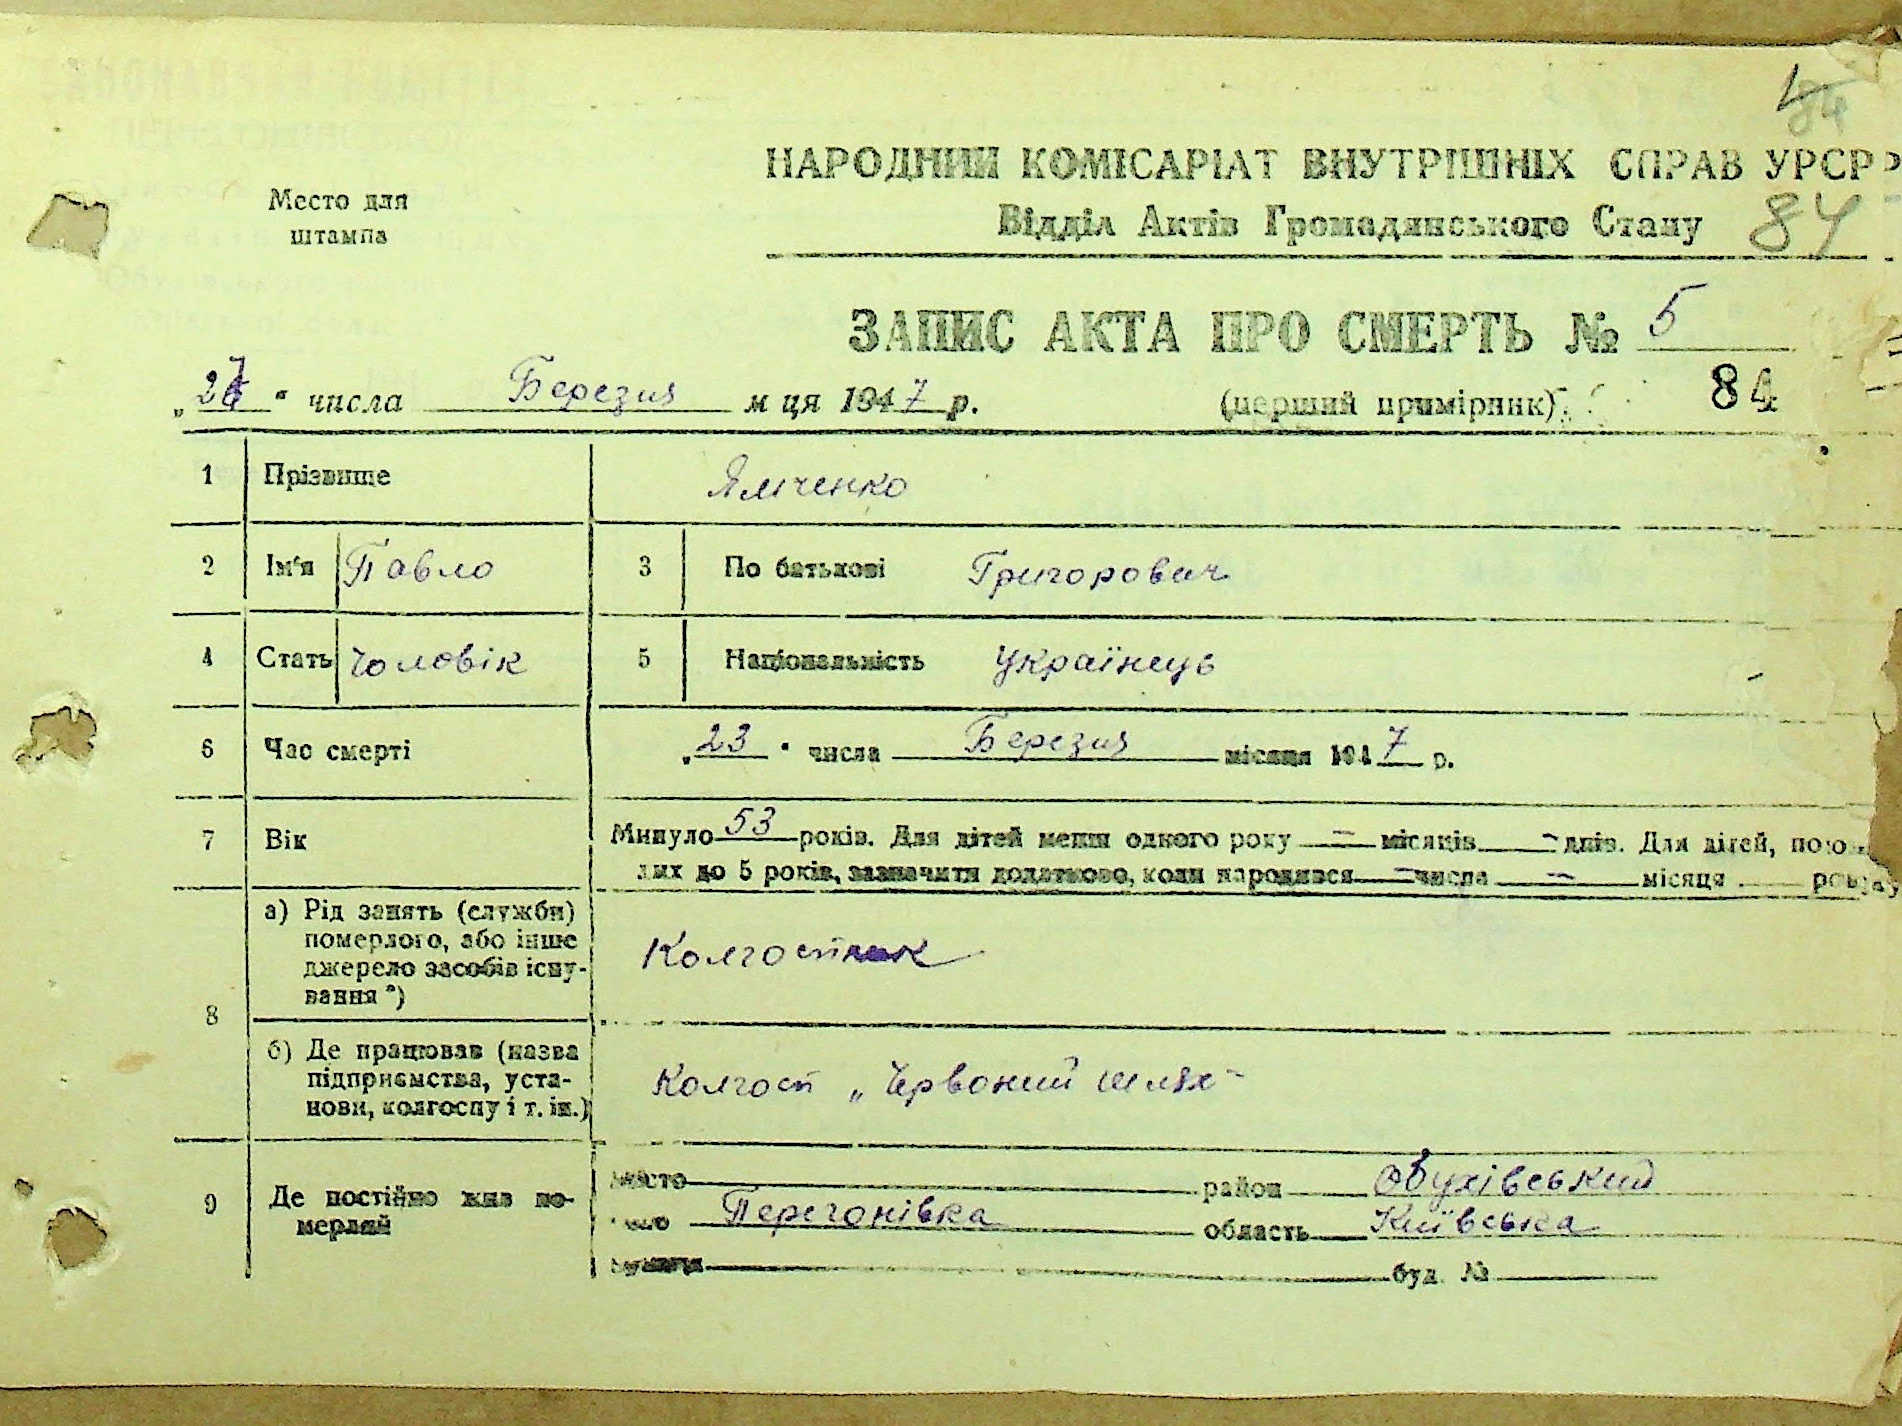 84
НАРОДНИЙ КОМІСАРІАТ ВНУТРІШНІХ СПРАВ УРСР
Место для
штампа
Відділ Актів Громадянського Стану 84
ЗАПИС АКТА ПРО СМЕРТЬ № 5
„27" числа Березня м ця 1947 р. (перший примірник) 84
1 Прізвище Ямченко
2 Ім'я Павло 3 По батькові Григорович
4 Стать Чоловік 5 Національність Українець
6 Час смерті „23" числа Березня місяця 1947 р.
7 Вік Минуло 53 років. Для дітей менш одного року — місяців — днів. Для дітей,
лих до 5 років, зазначити додатково, коли народився — числа — місяця
8 а) Рід занять (служби)
померлого, або інше
джерело засобів існу-
вання *) Колгоспник
б) Де працював (назва
підприємства, уста-
нови, колгоспу і т. ін.) Колгосп „Червоний шлях"
9 Де постійно жив по-
мерлий
місто район Обухівський
Перегонівка область Київська
буд. №